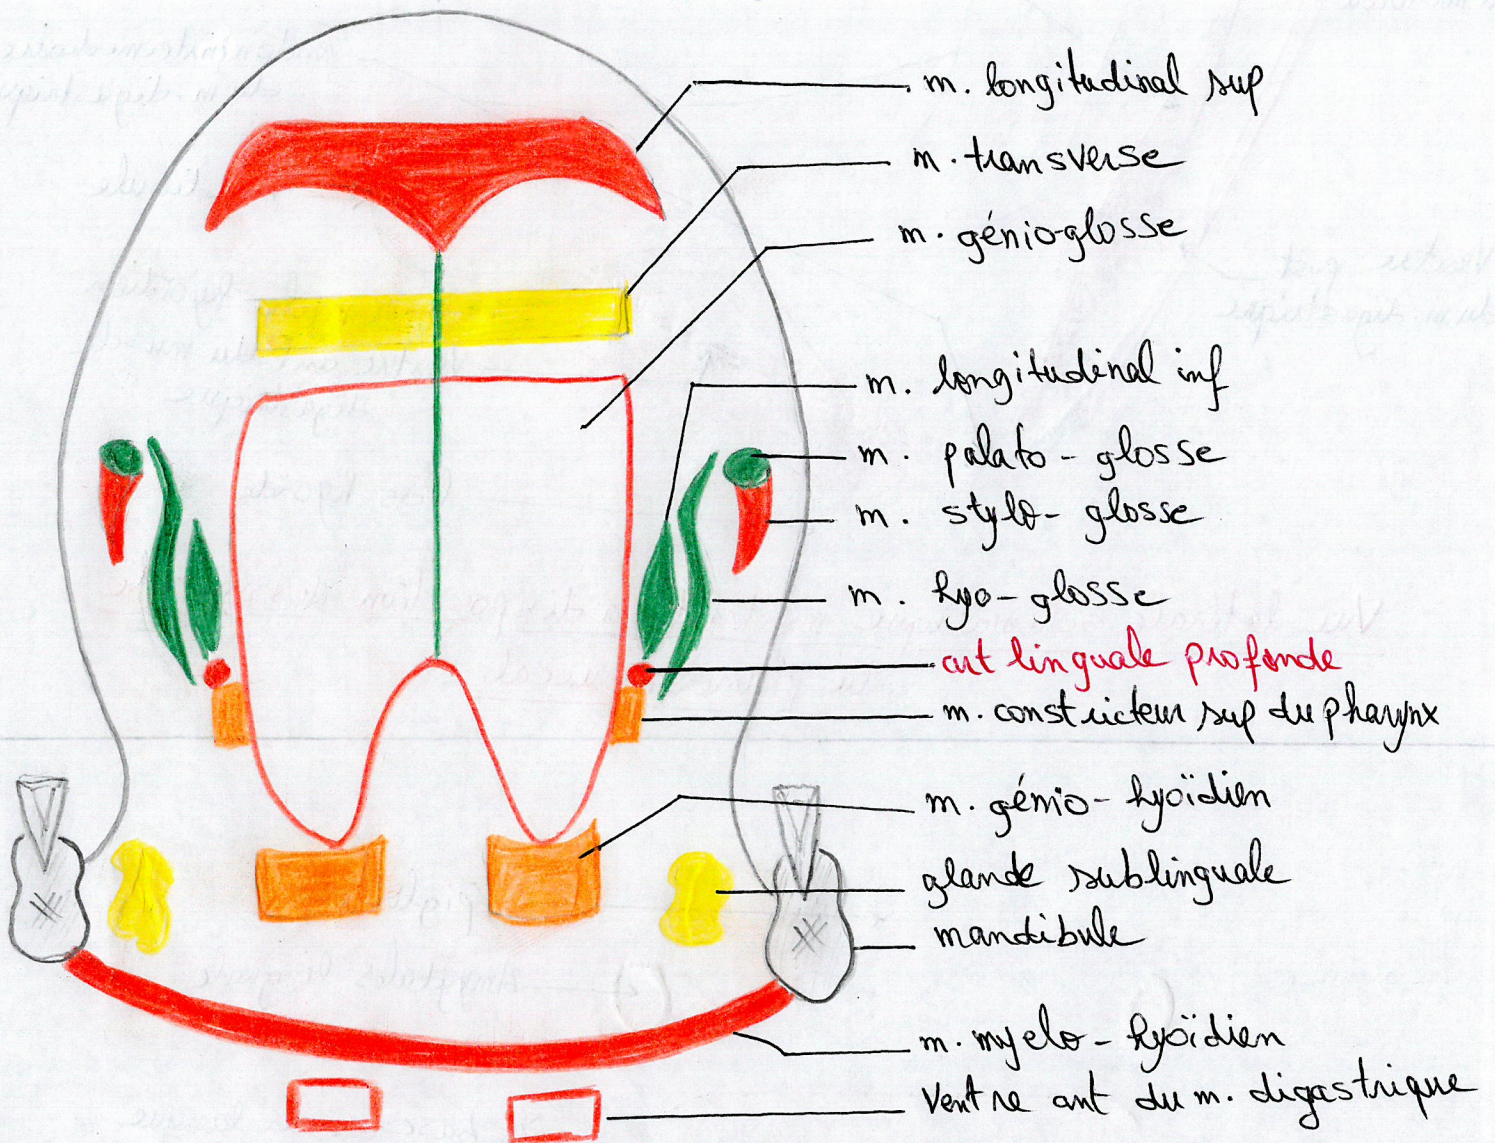 m. longitudinal sup
m. transverse
m. génio-glosse
m. longitudinal inf
m. palato-glosse
m. stylo-glosse
m. hyo-glosse
art linguale profonde
m. constricteur sup du pharynx
m. génio-hyoïdien
glande sublinguale
mandibule
m. myelo-hyoïdien
Ventre ant du m. digastrique